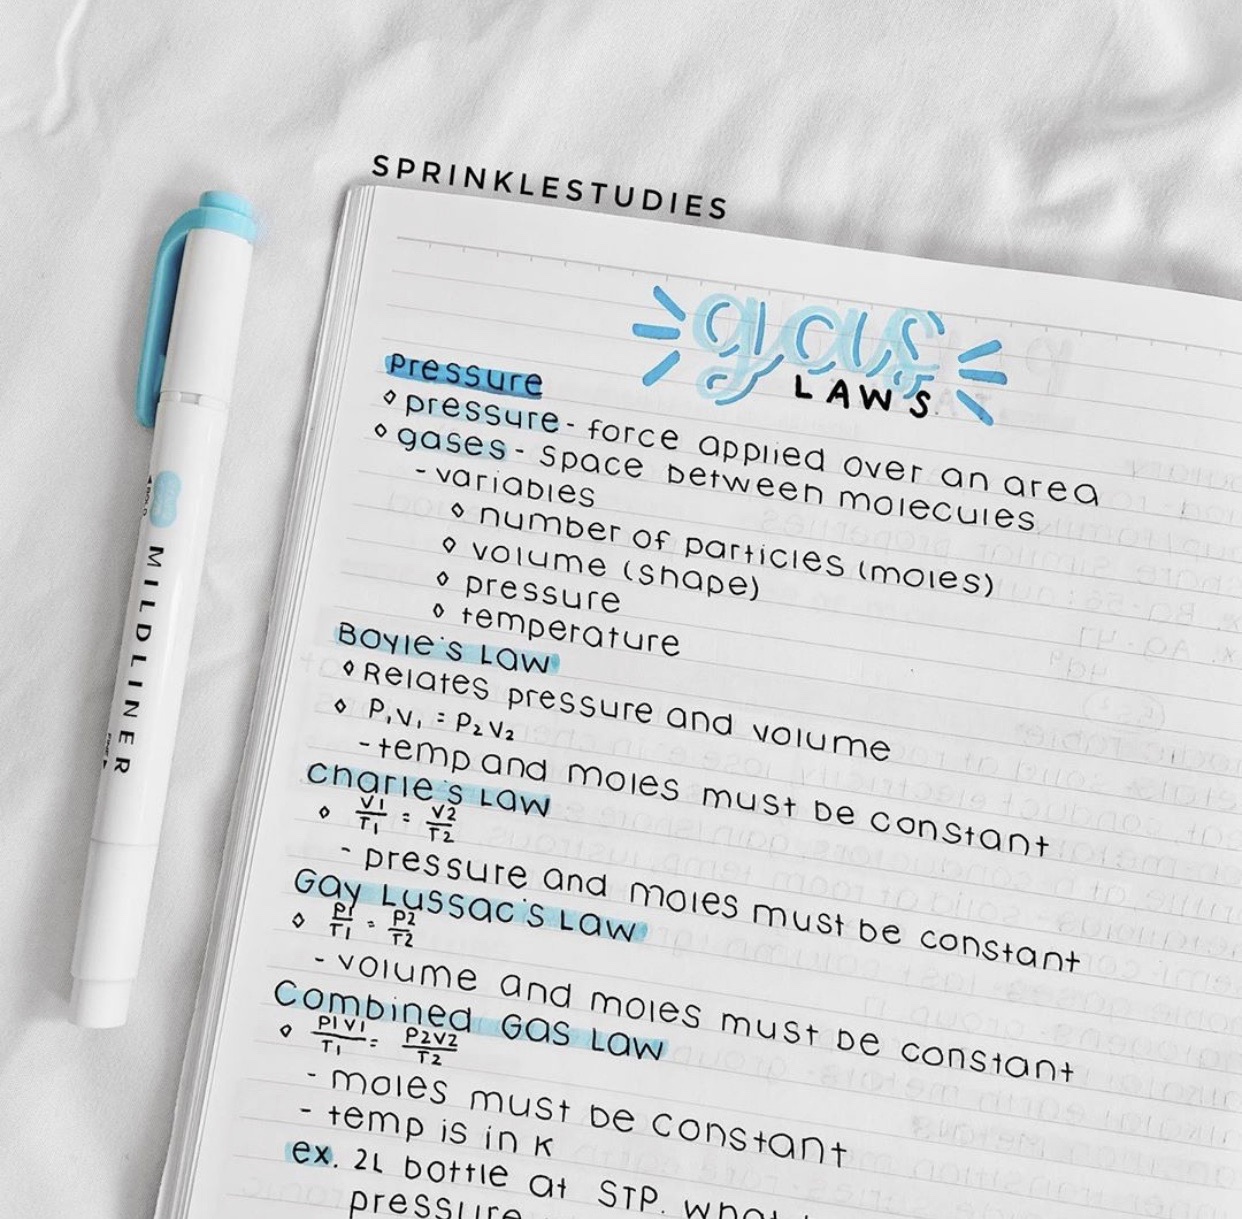 SPRINKLESTUDIES
gas
LAWS
pressure
◇ pressure - force applied over an area
◇ gases - space between molecules
- variables
◇ number of particles (moles)
◇ volume (shape)
◇ pressure
◇ temperature
Boyle's Law
◇ Relates pressure and volume
◇ P₁V₁ = P₂V₂
- temp and moles must be constant
Charle's Law
◇ V1/T1 = V2/T2
- pressure and moles must be constant
Gay Lussac's Law
◇ P1/T1 = P2/T2
- volume and moles must be constant
Combined Gas Law
◇ P1V1/T1 = P2V2/T2
- moles must be constant
- temp is in K
ex. 2L bottle at STP. what
pressure
MILDLINER